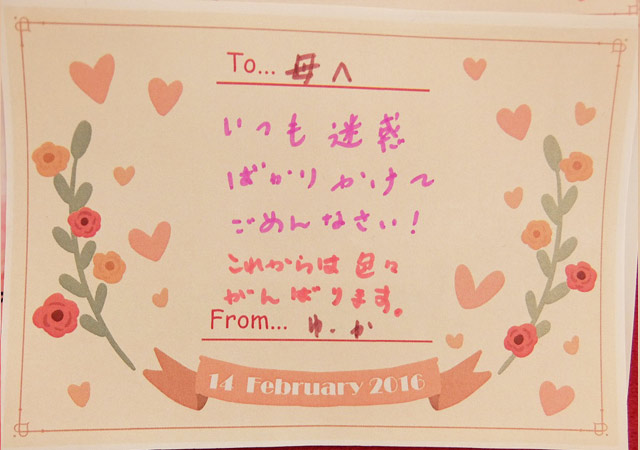 To... 母へ
いつも迷惑
ばかりかけて
ごめんなさい!
これからは色々
がんばります。
From... ゆ.か
14 February 2016